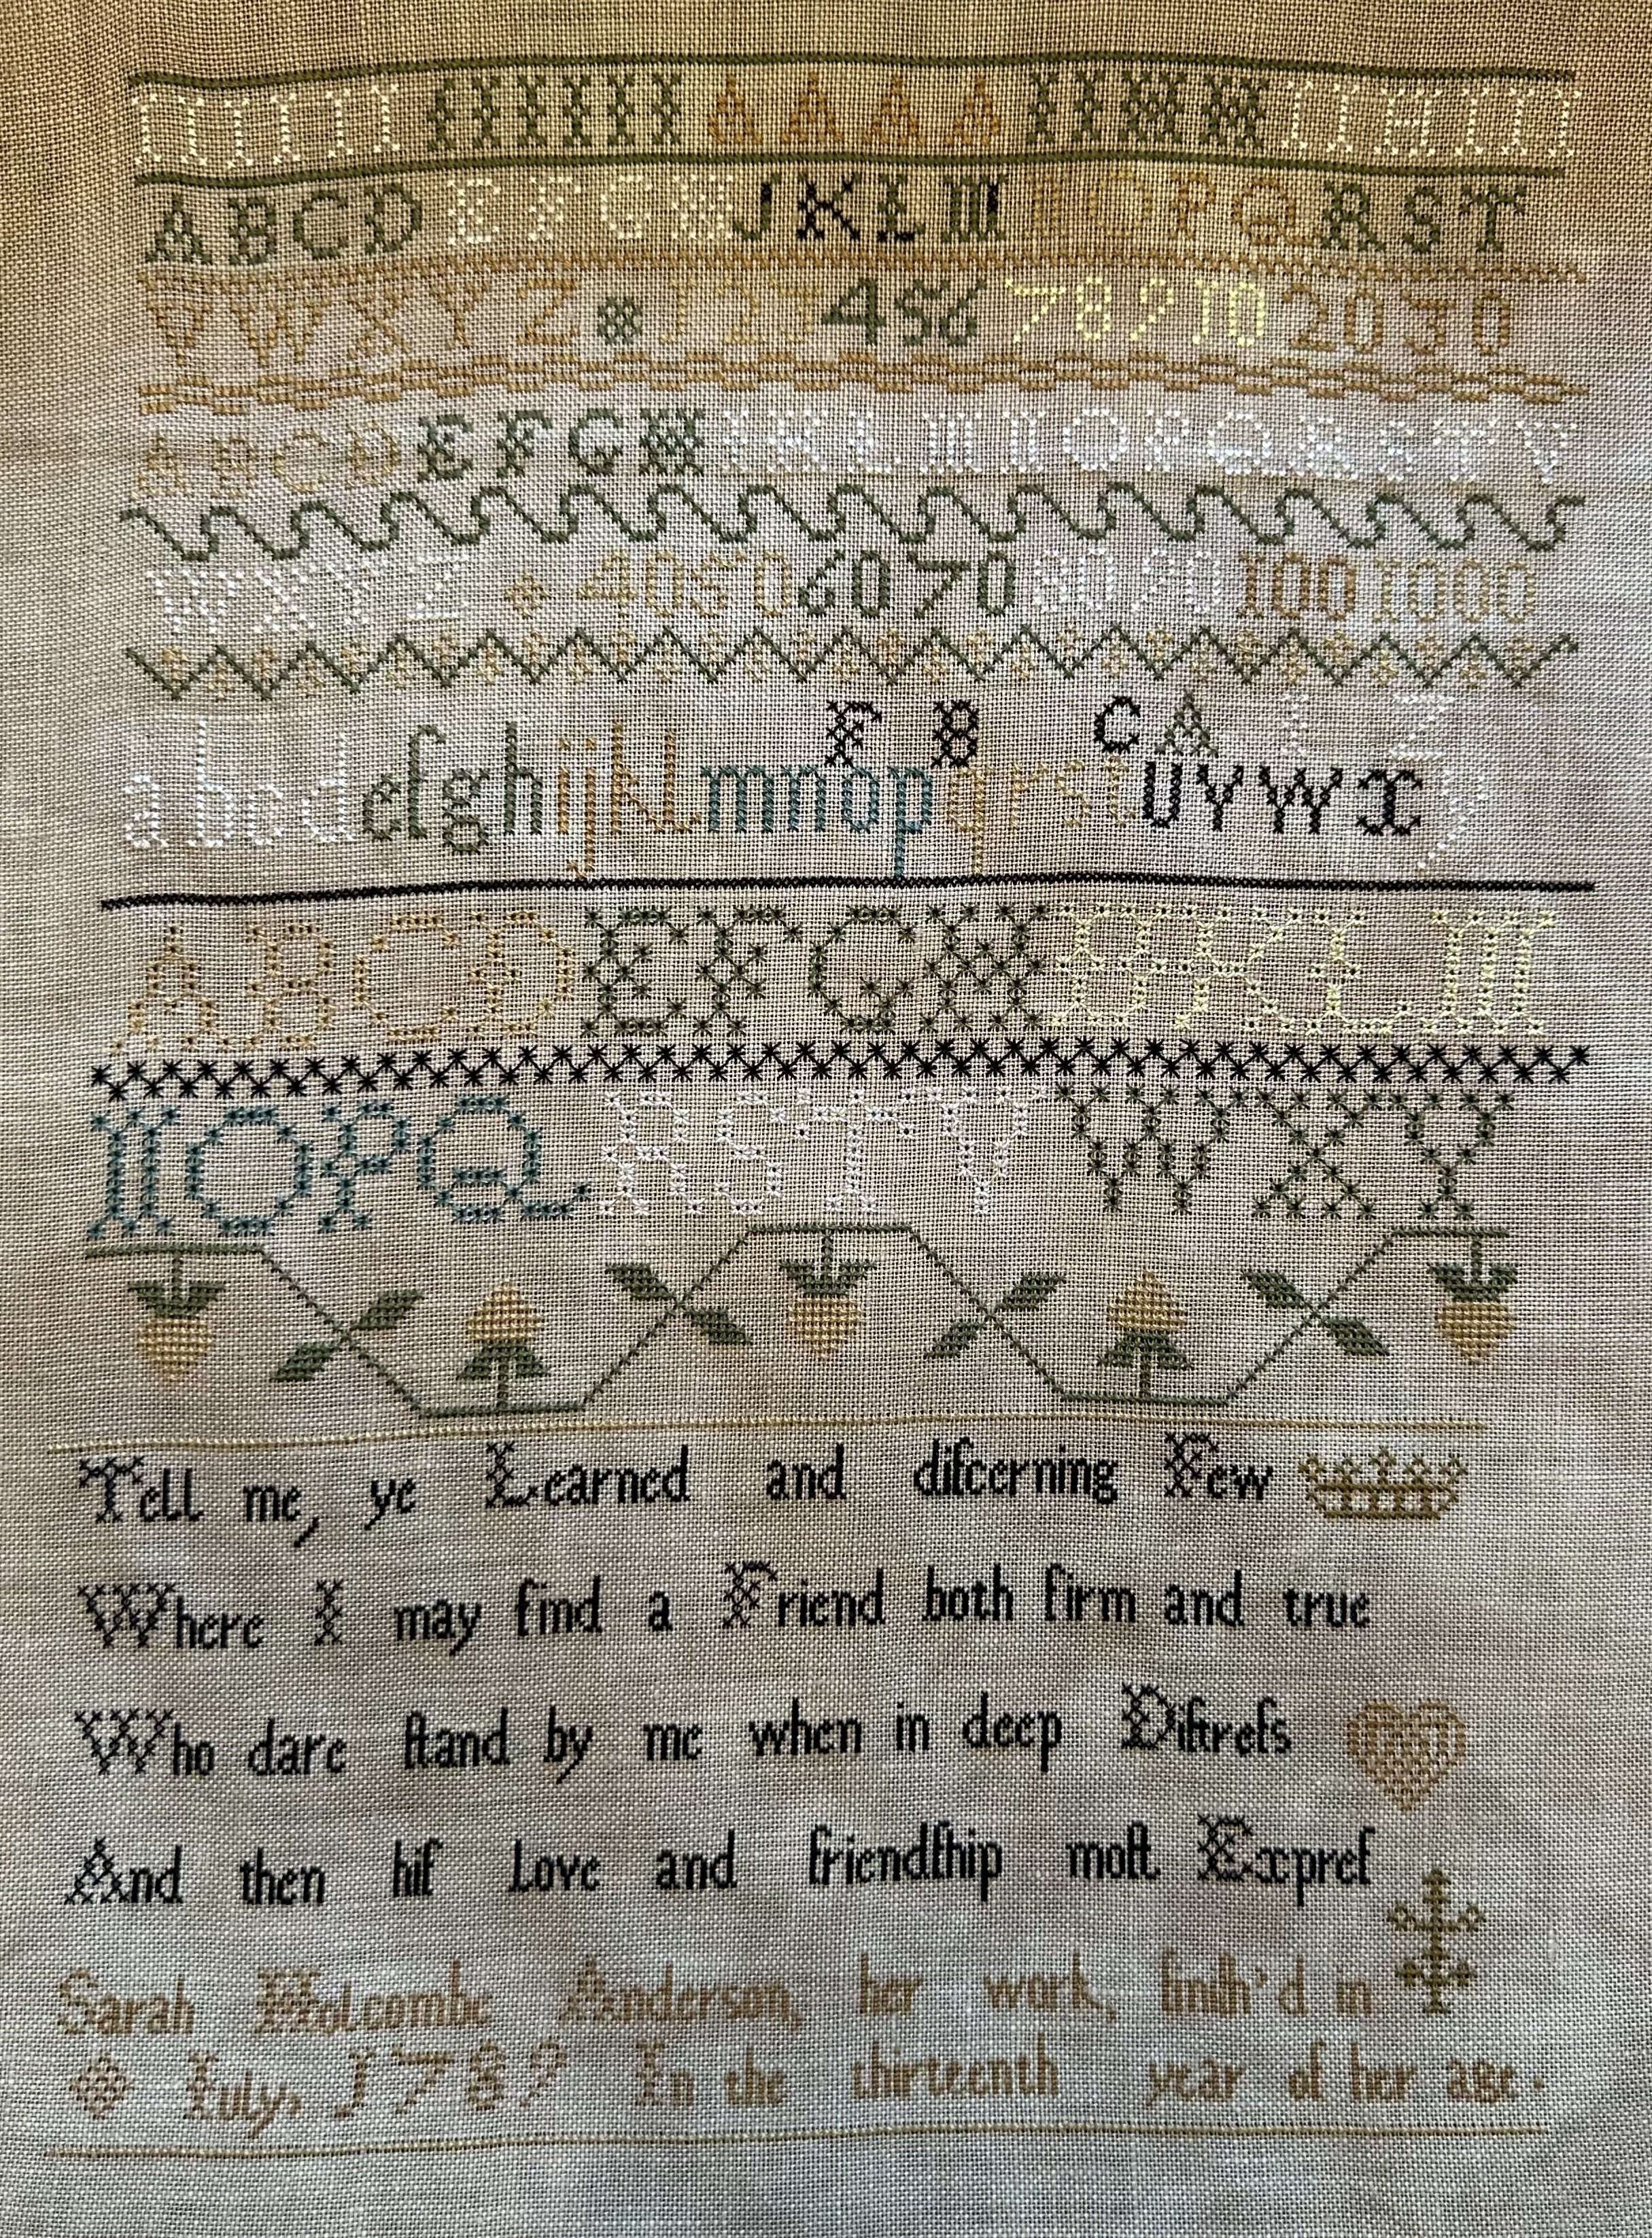 A B C D E F G H J K L M N O P Q R S T
V W X Y Z 1 2 3 4 5 6 7 8 9 10 20 30
A B C D E F G H I K L M N O P Q R S T V
W X Y Z 40 50 60 70 80 90 100 1000
F B C A L Z
a b c d e f g h i j k l m n o p q r s t u v w x y
A B C D E F G H I K L M
N O P Q R S T V W X Y
Tell me, ye Learned and diſcerning Few
Where I may find a Friend both firm and true
Who dare ſtand by me when in deep Diſtreſs
And then hiſ Love and friendſhip moſt Expreſ
Sarah Holcombe Anderson, her work, finiſh'd in
Iuly, 1789 In the thirteenth year of her age.